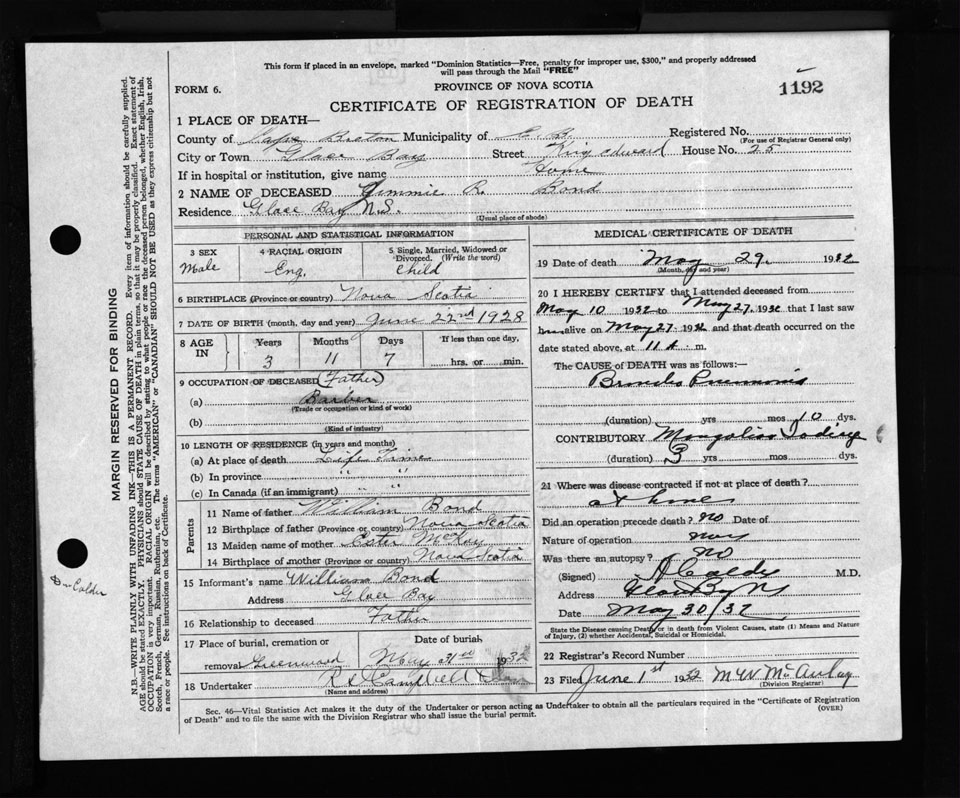 This form if placed in an envelope, marked "Dominion Statistics—Free, penalty for improper use, $300," and properly addressed
will pass through the Mail "FREE"
FORM 6.
PROVINCE OF NOVA SCOTIA
1192
CERTIFICATE OF REGISTRATION OF DEATH
1 PLACE OF DEATH—
County of Cape Breton Municipality of C. B. Registered No.
(For use of Registrar General only)
City or Town Glace Bay Street King edward House No. 25
If in hospital or institution, give name Home
2 NAME OF DECEASED Jimmie R. Bond
Residence Glace Bay N.S.
(Usual place of abode)
PERSONAL AND STATISTICAL INFORMATION
3 SEX
Male
4 RACIAL ORIGIN
Eng.
5 Single, Married, Widowed or Divorced. (Write the word)
Child
6 BIRTHPLACE (Province or country) Nova Scotia
7 DATE OF BIRTH (month, day and year) June 22nd 1928
8 AGE IN
Years Months Days If less than one day,
3 11 7 hrs. or min.
9 OCCUPATION OF DECEASED (Father)
(a) Barber
(Trade or occupation or kind of work)
(b)
(Kind of industry)
10 LENGTH OF RESIDENCE (in years and months)
(a) At place of death Life Time
(b) In province " "
(c) In Canada (if an immigrant) " "
Parents
11 Name of father William Bond
12 Birthplace of father (Province or country) Nova Scotia
13 Maiden name of mother Ester McKay
14 Birthplace of mother (Province or country) Nova Scotia
15 Informant's name William Bond
Address Glace Bay
16 Relationship to deceased Father
17 Place of burial, cremation or
removal Greenwood
Date of burial
May 31st 1932
18 Undertaker R L Campbell
(Name and address)
MEDICAL CERTIFICATE OF DEATH
19 Date of death May 29. 1932
(Month, day and year)
20 I HEREBY CERTIFY that I attended deceased from
May 10 1932 to May 27, 1932 that I last saw
him alive on May 27. 1932 and that death occurred on the
date stated above, at 11 A. m.
The CAUSE OF DEATH was as follows:—
Broncho Pneumonia
(duration) yrs mos 10 dys.
CONTRIBUTORY Mongolian
(duration) 3 yrs mos dys.
21 Where was disease contracted if not at place of death?
at home
Did an operation precede death? No Date of
Nature of operation
Was there an autopsy? No
(Signed) A Calder M.D.
Address Glace Bay NS
Date May 30/32
State the Disease causing Death, or in death from Violent Causes, state (1) Means and Nature
of Injury, (2) whether Accidental, Suicidal or Homicidal.
22 Registrar's Record Number
23 Filed June 1st 1932 M W McAulay
(Division Registrar)
Sec. 46—Vital Statistics Act makes it the duty of the Undertaker or person acting as Undertaker to obtain all the particulars required in the "Certificate of Registration
of Death" and to file the same with the Division Registrar who shall issue the burial permit.
(OVER)
MARGIN RESERVED FOR BINDING
N.B.—WRITE PLAINLY WITH UNFADING INK—THIS IS A PERMANENT RECORD. Every item of information should be carefully supplied.
AGE should be stated EXACTLY. PHYSICIANS should STATE CAUSE OF DEATH in plain terms, so that it may be properly classified. Exact statement of
OCCUPATION is very important. RACIAL ORIGIN will be described by stating to what people or race the deceased person belonged, whether English, Irish,
Scotch, French, German, Russian, Ruthenian, etc. The terms "AMERICAN" or "CANADIAN" SHOULD NOT BE USED as they express citizenship but not
a race or people. See instructions on back of Certificate.
Dr Calder